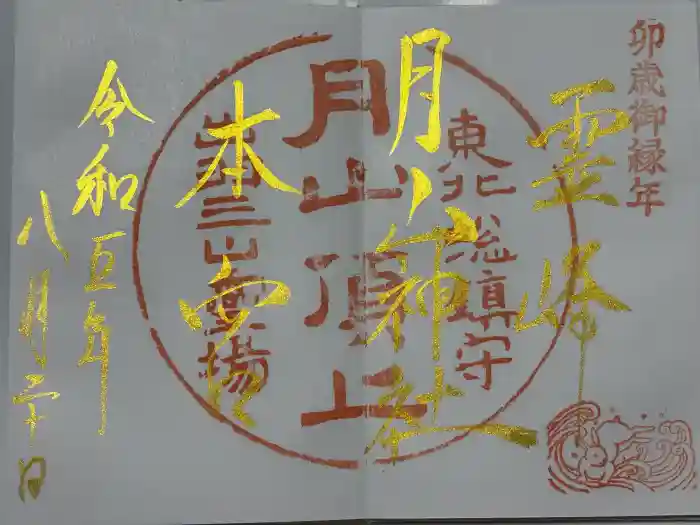 卯歳御縁年
霊峰
月山神社
本宮
令和五年
八月二十日
東北総鎮守
月山頂上
出羽三山霊場